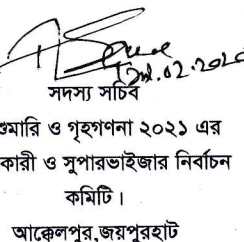 সদস্য সচিব
শুমারি ও গৃহগণনা ২০২১ এর
কারী ও সুপারভাইজার নির্বাচন
কমিটি।
আক্কেলপুর,জয়পুরহাট